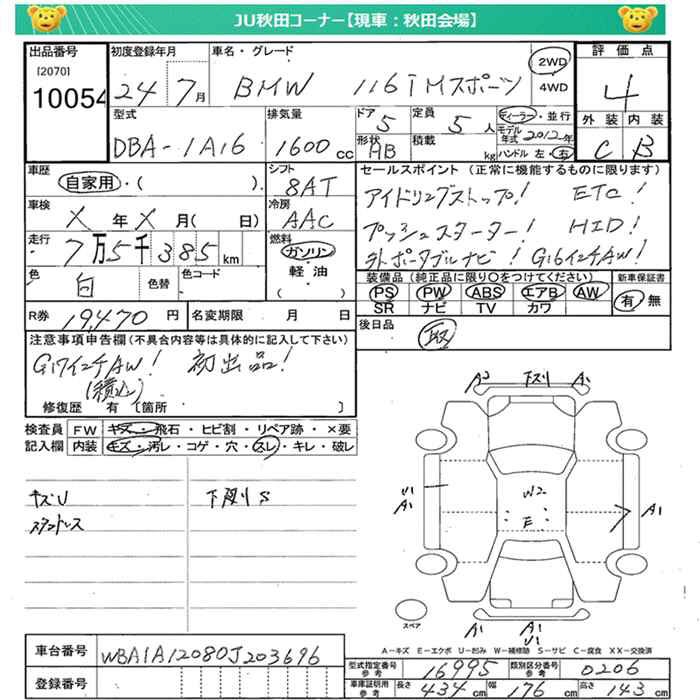 JU秋田コーナー【現車：秋田会場】
出品番号
[2070]
10054
初度登録年月
24 7月
車名・グレード
BMW 116i Mスポーツ
2WD
4WD
評価点
4
外装 内装
C B
型式
DBA-1A16
排気量
1600cc
ドア
5
定員
5人
形状
HB
積載
kg
ディーラー・並行
モデル年式 2012年
ハンドル 左・右
車歴
自家用・( ).
シフト
8AT
車検
X年X月(　日)
冷房
AAC
走行
7万5千385km
燃料
ガソリン
軽油
( )
色
白
色替
色コード
R券 19,470円
名変期限　月　日
セールスポイント（正常に機能するものに限ります）
アイドリングストップ! ETC!
プッシュスターター! HID!
外ポータブルナビ! G16インチAW!
装備品（純正品に限り○をつけてください）
PS PW ABS エアB AW
SR ナビ TV カワ
新車保証書
有 無
後日品
取
注意事項申告欄（不具合内容等は具体的に記入して下さい）
G17インチAW! 初出品!
(積込)
修復歴 有〔箇所 〕
検査員記入欄
FW キズ・飛石・ヒビ割・リペア跡・×要
内装 キズ・汚レ・コゲ・穴・スレ・キレ・破レ
キズU
スタッドレス
下廻りS
A2 下スリ A1
U1
A1
W2
E
A1
A1
A1
U1
スペア
A－キズ E－エクボ U－凹み W－補修跡 S－サビ C－腐食 XX－交換済
車台番号 WBA1A12080J203696
登録番号
型式指定番号 参考 16995
類別区分番号 参考 0206
車庫証明用 参考 長さ 434cm 幅 176cm 高さ 143cm